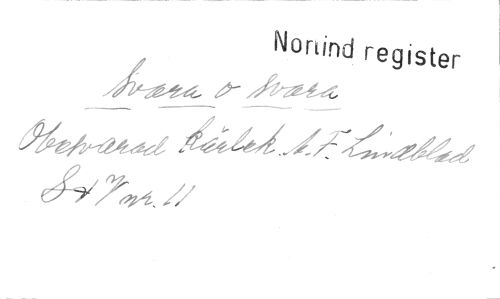 Nonind register
Svara o svara
Obesvarad kärlek. A. F. Lindblad
S & V nr. 11